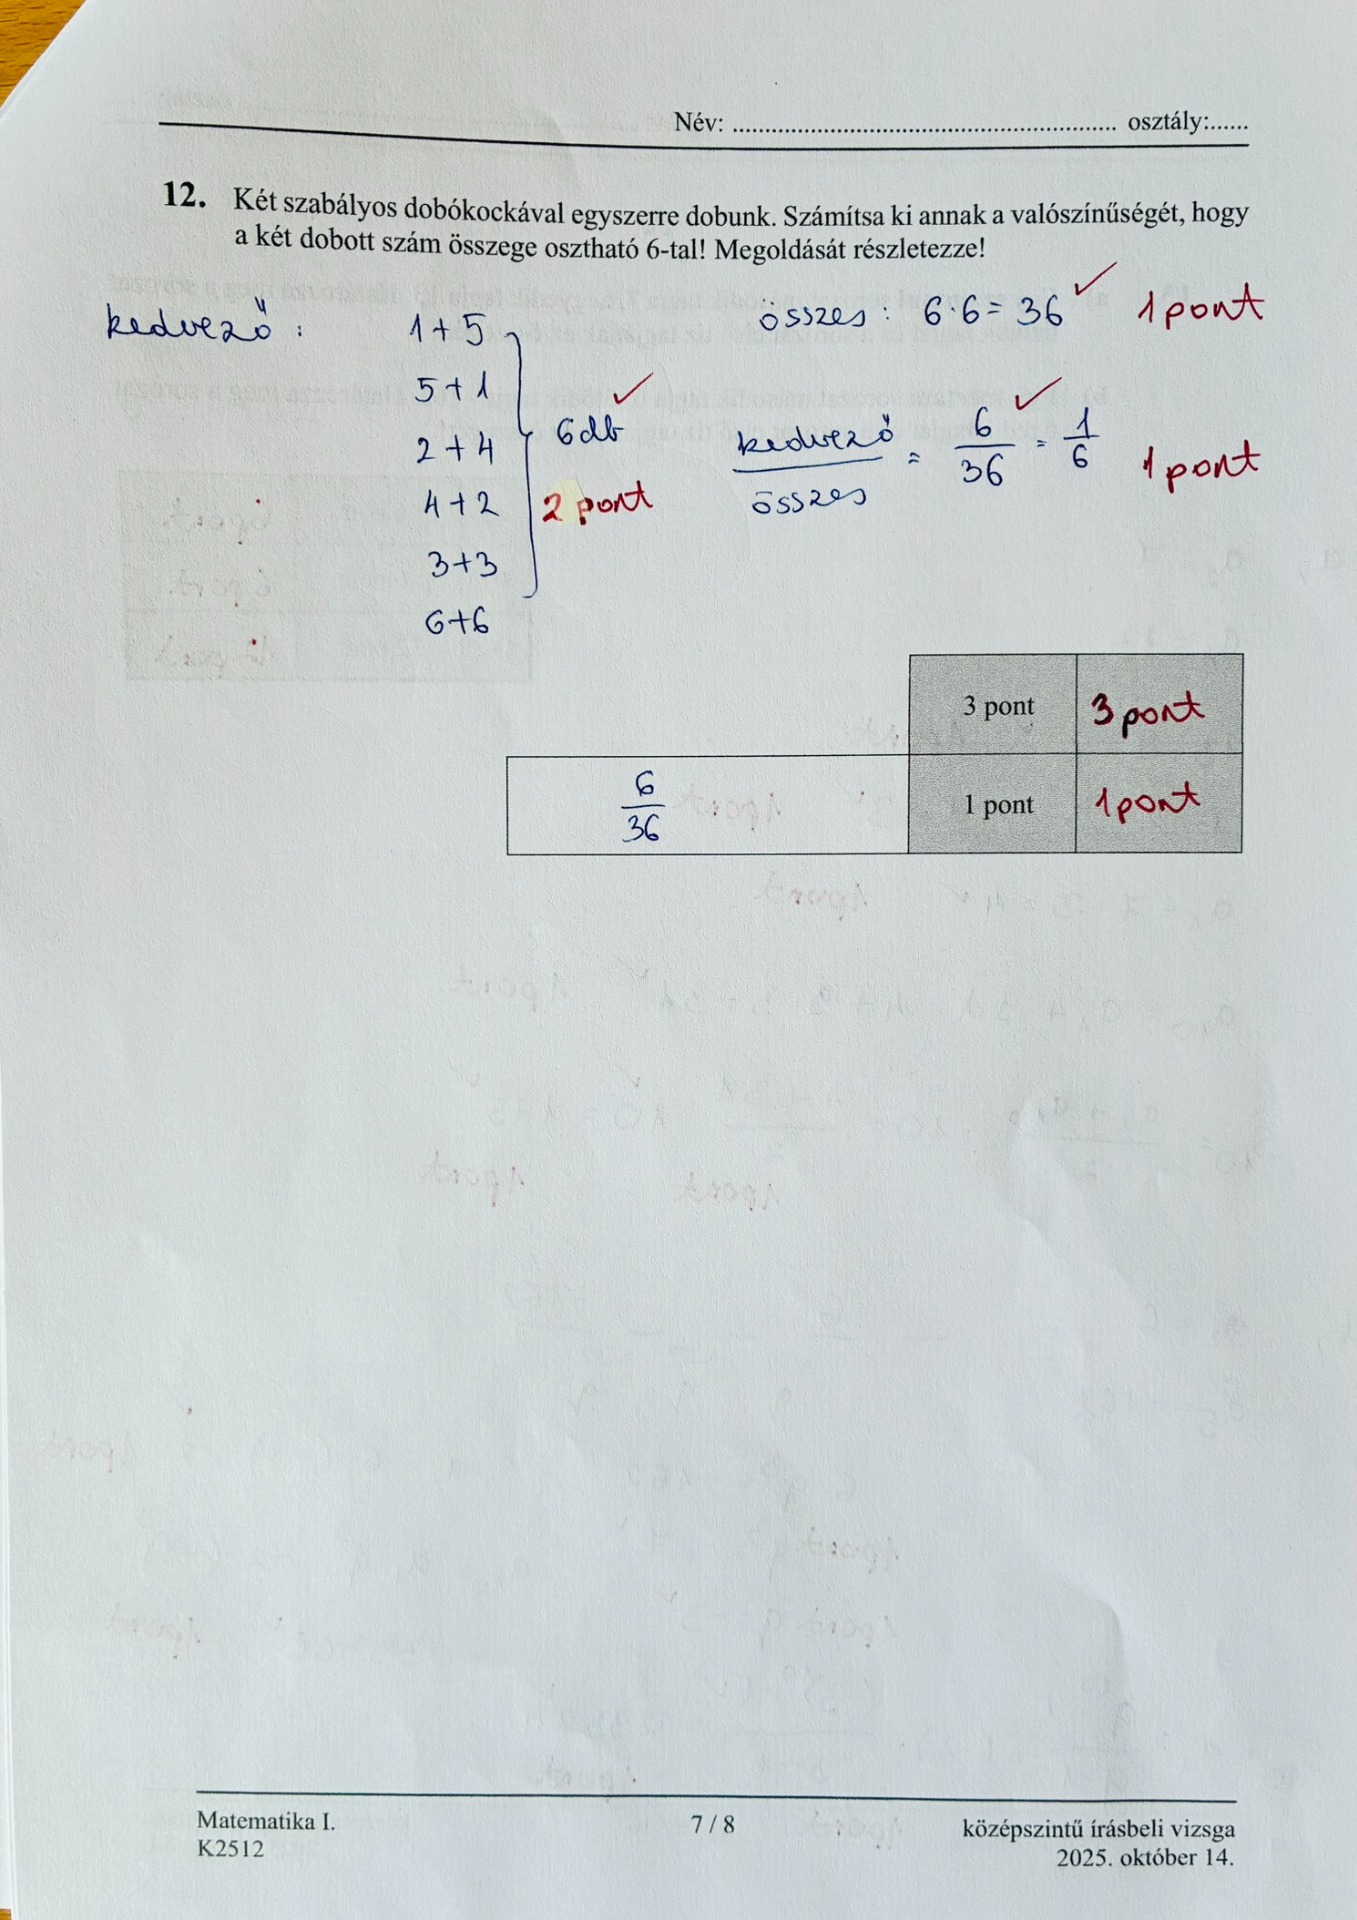 Név: ........................................................ osztály:......
12. Két szabályos dobókockával egyszerre dobunk. Számítsa ki annak a valószínűségét, hogy
a két dobott szám összege osztható 6-tal! Megoldását részletezze!
kedvező : 1+5 összes : 6·6 = 36 ✓ 1 pont
5+1 ✓
2+4 6db kedvező/összes = 6/36 = 1/6 ✓ 1 pont
4+2 2 pont
3+3
6+6
3 pont 3 pont
6/36 1 pont 1 pont
Matematika I. 7 / 8 középszintű írásbeli vizsga
K2512 2025. október 14.